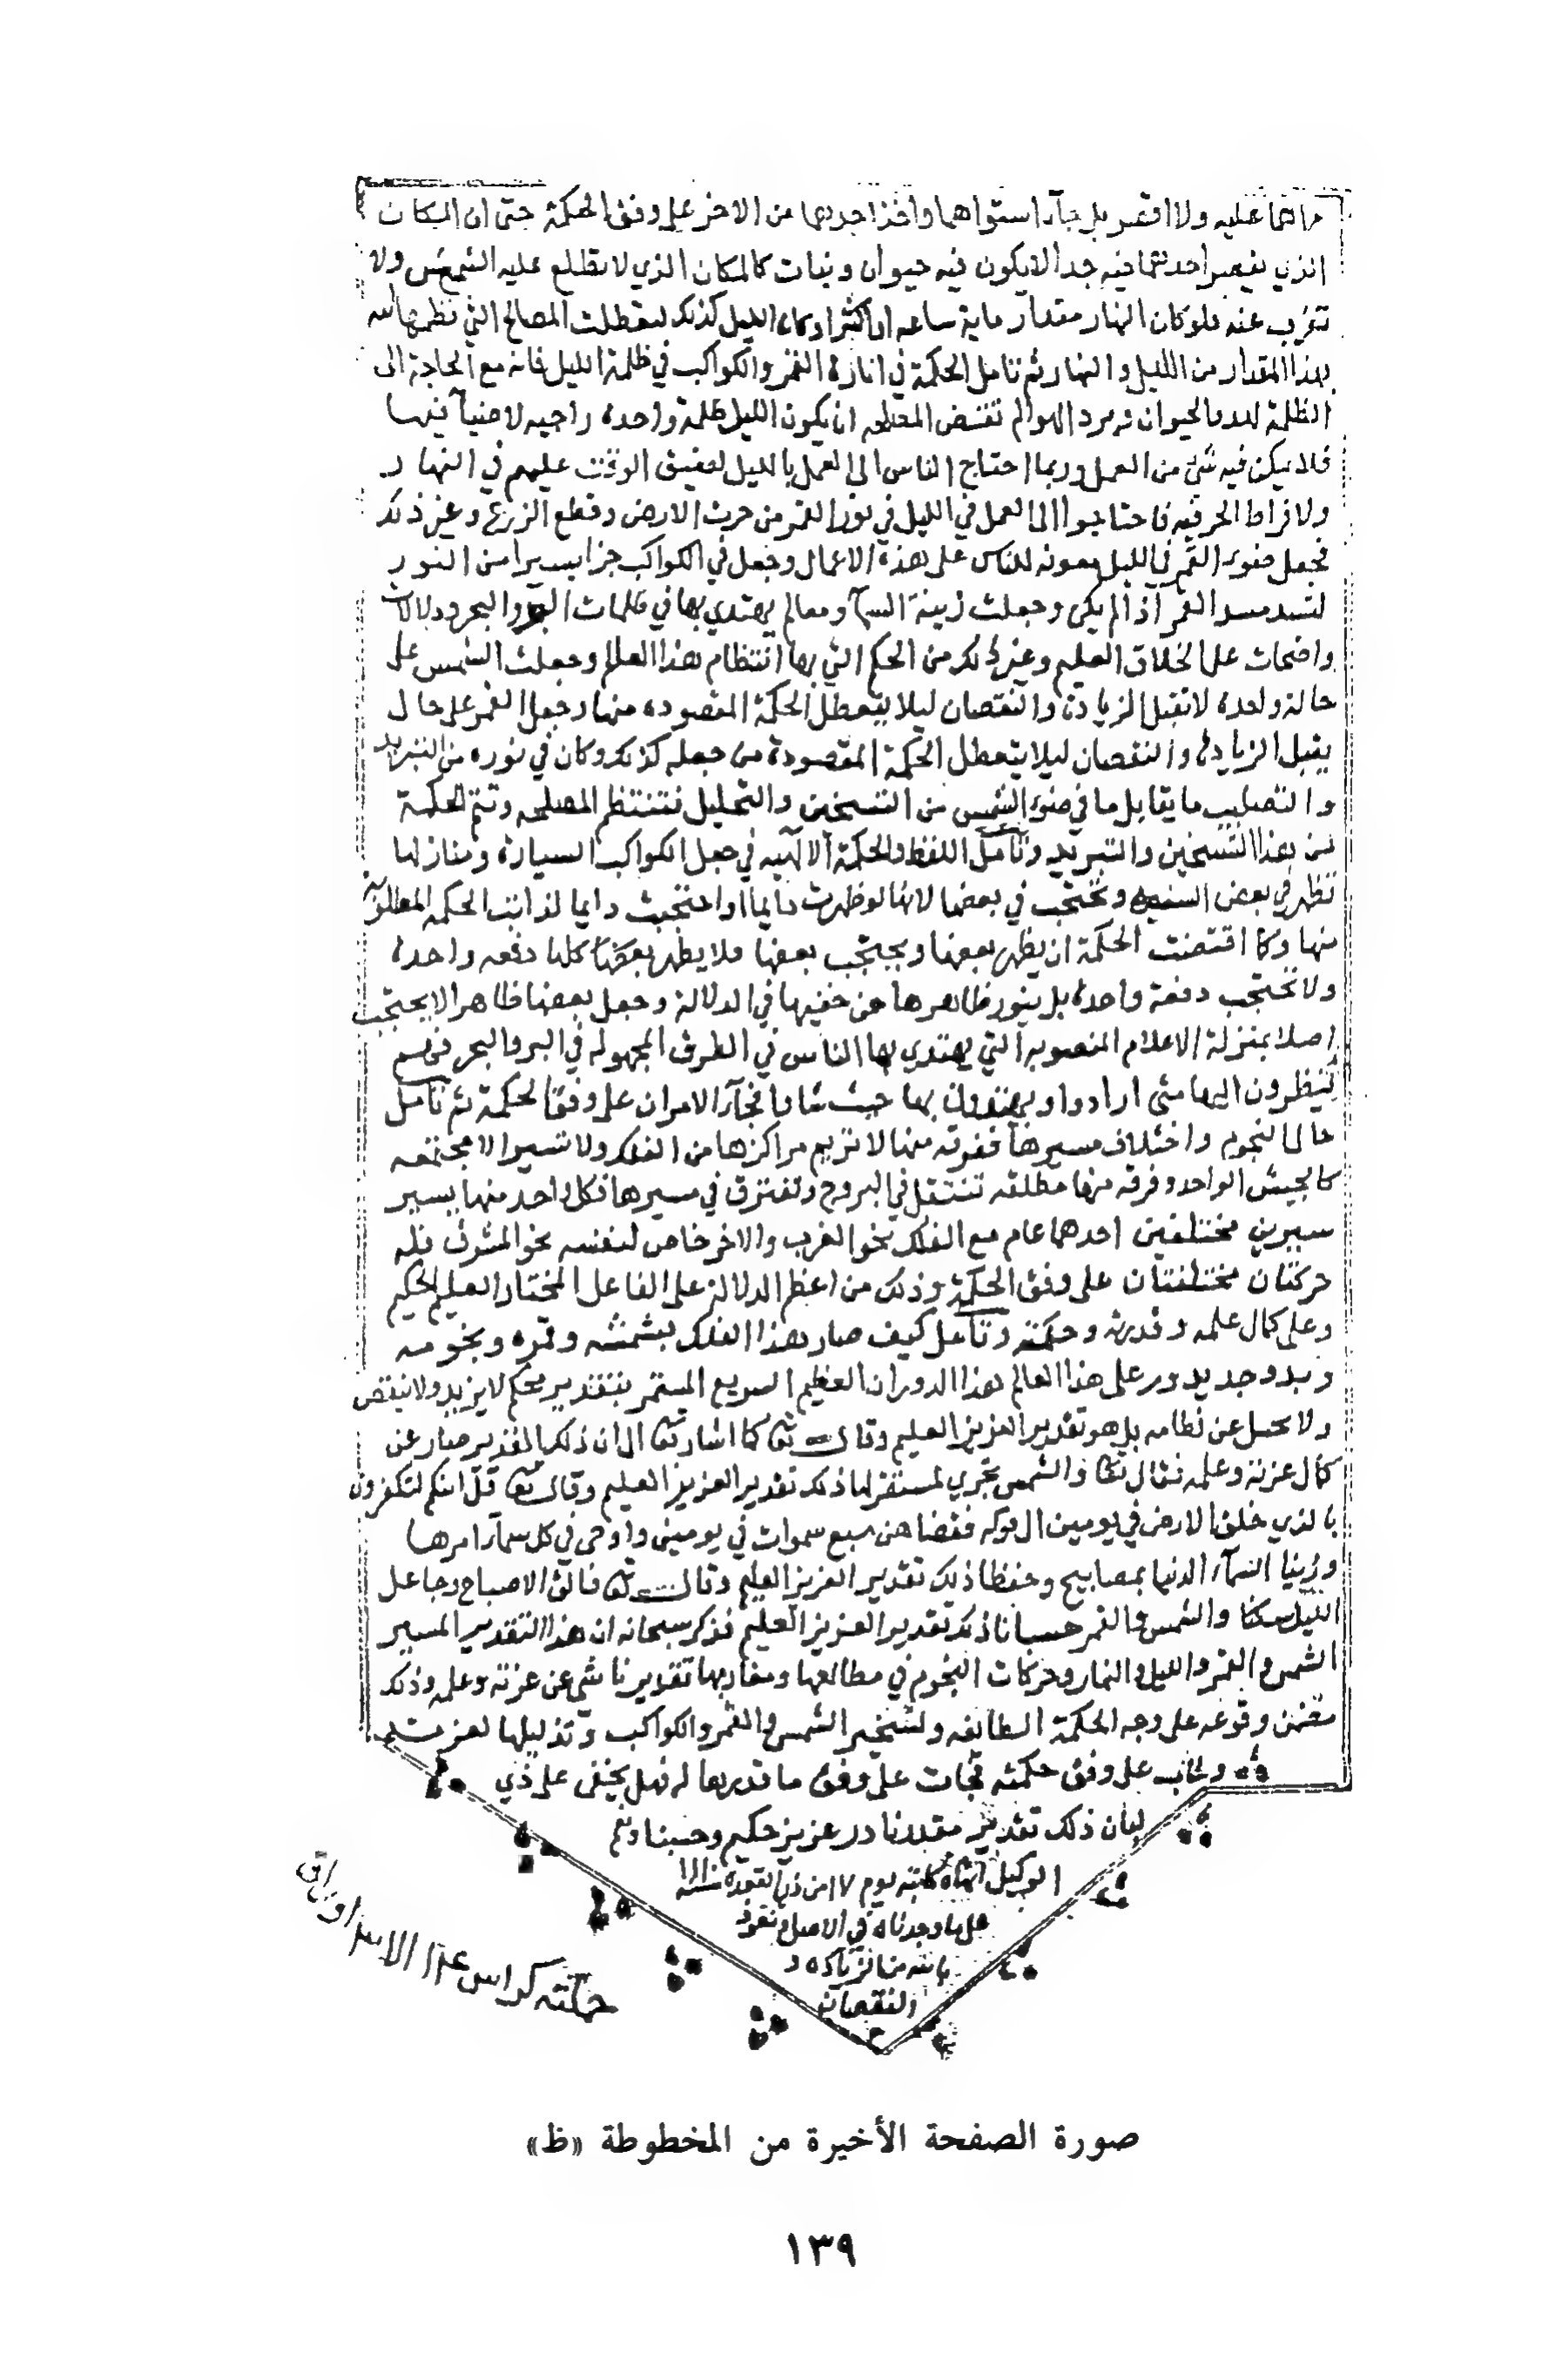 ما هما عليه ولا اقصر بل جآء استواهما واخذ احدهما من الاخر على وفق الحكمة حتى ان المكان
الذي يقصر احدهما فيه جدا لا يكون فيه حيوان ونبات كالمكان الذي لا تطلع عليه الشمس ولا
تغرب عنه فلو كان النهار مقدار ماية ساعه او اكثر او كان الليل كذلك لتعطلت المصالح التي نظمها الله
بهذا المقدار من الليل والنهار ثم تامل الحكمة في انارة القمر والكواكب في ظلمة الليل فانه مع الحاجة الى
الظلمة لهدو الحيوان وبرد الهوا لم تقتض المصلحه ان يكون الليل ظلمة واحدة داجيه لا ضيآ فيها
فلا يمكن فيه شي من العمل وربما احتاج الناس الى العمل بالليل لضيق الوقت عليهم في النهار
ولافراط الحر فيه فاحتاجوا الى العمل في الليل في نور القمر من حرث الارض وقطع الزرع وغير ذلك
فجعل ضوء القمر في الليل معونه للناس على هذة الاعمال وجعل في الكواكب جزا يسيرا من النور
لتسد مسد القمر اذ الم يكن وجعلت زينة السمآ ومعالم يهتدي بها في ظلمات البر والبحر ودلالات
واضحات على الخلاق العليم وغير ذلك من الحكم التي بها انتظام هذا العالم وجعلت الشمس على
حالة واحدة لا تقبل الزيادة والنقصان ليلا يتعطل الحكمة المقصوده منها وجعل القمر على حال
يقبل الزيادة والنقصان ليلا يتعطل الحكمة المقصودة من جعله كذلك وكان في نوره من التبريد
والتصليب ما يقابل ما في ضوء الشمس من التسخين والتحليل فتنتظم المصلحه وتتم الحكمة
من هذا التسخين والتبريد وتامل اللطف والحكمة الالهيه في جعل الكواكب السيارة ومنازلها
تظهر في بعض السنه وتحتجب في بعضها لانها لو ظهرت دايما او احتجبت دايما لفاتت الحكمه المطلوبة
منها وكما اقتضت الحكمة ان يظهر بعضها ويحتجب بعضها فلا يظهر كلها دفعه واحدة
ولا تحتجب دفعة واحدة بل ينوب ظاهرها عن خفيها في الدلالة وجعل بعضها ظاهرا لا يحتجب
اصلا بمنزلة الاعلام المنصوبه التي يهتدي بها الناس في الطرق المجهوله في البر والبحر فهم
ينظرون اليها متى ارادوا ويهتدون بها حيث شاوا فجآء الامران على وفق الحكمة ثم تامل
حال النجوم واختلاف مسيرها ففرقه منها لا تريم مراكزها من الفلك ولا تسير الا مجتمعه
كالجيش الواحد وفرقه منها مطلقه تنتقل في البروج وتفترق في مسيرها فكل واحد منها يسير
سيرين مختلفين احدهما عام مع الفلك نحو الغرب والاخر خاص لنفسه نحو المشرق فله
حركتان مختلفتان على وفق الحكمة وذلك من اعظم الدلالة على الفاعل المختار العليم الحكيم
وعلى كمال علمه وقدرته وحكمته وتامل كيف صار هذا الفلك بشمسه وقمره ونجومه
وبروجه يدور على هذا العالم هذا الدوران العظيم السريع المستمر بتقدير محكم لا يزيد ولا ينقص
ولا يختل عن نظامه بل هو تقدير العزيز العليم كما اشار تعالى الى ان ذلك التقدير صار عن
كمال عزته وعلمه فقال تعالى والشمس تجري لمستقر لها ذلك تقدير العزيز العليم وقال تعالى قل اينكم لتكفرون
بالذي خلق الارض في يومين الى قوله فقضاهن سبع سموات في يومين واوحى في كل سمآء امرها
وزينا السمآء الدنيا بمصابيح وحفظا ذلك تقدير العزيز العليم وقال تعالى فالق الاصباح وجاعل
الليل سكنا والشمس والقمر حسبانا ذلك تقدير العزيز العليم فذكر سبحانه ان هذا التقدير المسير
الشمس والقمر والليل والنهار وحركات النجوم في مطالعها ومغاربها تقدير ناشى عن عزته وعلمه وذلك
متضمن وقوعه على وجه الحكمة ولتسخير الشمس والقمر والكواكب وتذليلها لعزته
على وفق حكمته فجات على وفق ما قدرها له فهل يخفى على ذي
لب ان ذلك تقدير مقدر قادر عزيز حكيم وحسبنا ونعم
الوكيل كاتبه يوم ١٧ من ذي القعدة سنة
على ما وجدناه في الاصل ونعوذ
بالله من الزيادة و
النقصان
كراس
صورة الصفحة الأخيرة من المخطوطة «ظ»
١٣٩